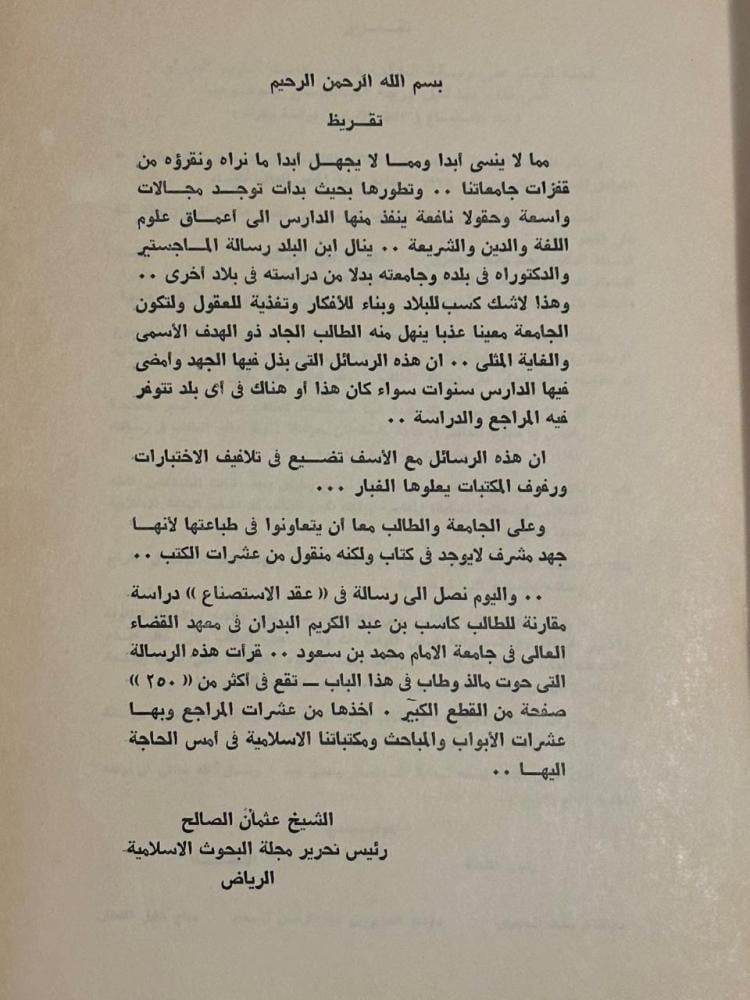 بسم الله الرحمن الرحيم
تقـــريظ
مما لا ينسى أبدا وممـــا لا يجهـــل أبدا ما نراه ونقرؤه من
قفزات جامعاتنا ٠٠ وتطورها بحيث بدأت توجـــد مجـــالات
واسعة وحقولا نافعة ينفذ منها الدارس الى أعمـــاق علوم
اللغة والدين والشريعة ٠٠ ينال ابن البلد رسالة المـــاجستير
والدكتوراه فى بلده وجامعته بدلا من دراسته فى بلاد أخرى ٠٠
وهذا لاشك كسب للبلاد وبناء للأفكار وتغذية للعقول ولتكون
الجامعة معينا عذبا ينهل منه الطالب الجاد ذو الهدف الأسمى
والغاية المثلى ٠٠ ان هذه الرسائل التى بذل فيها الجهد وأمضى
فيها الدارس سنوات سواء كان هذا أو هناك فى أى بلد تتوفر
فيه المراجع والدراسة ٠٠
ان هذه الرسائل مع الأسف تضـــيع فى تلافيف الاختبارات
ورفوف المكتبات يعلوها الغبار ٠٠٠
وعلى الجامعة والطالب معا أن يتعاونوا فى طباعتها لأنهـــا
جهد مشرف لايوجد فى كتاب ولكنه منقول من عشرات الكتب ٠٠
٠٠ واليوم نصل الى رسالة فى (( عقد الاستصناع )) دراسة
مقارنة للطالب كاسب بن عبد الكريم البدران فى معهد القضاء
العالى فى جامعة الامام محمد بن سعود ٠٠ قرأت هذه الرسالة
التى حوت مالذ وطاب فى هذا الباب ــ تقع فى أكثر من (( ٢٥٠ ))
صفحة من القطع الكبير ٠ أخذها من عشرات المراجع وبهـــا
عشرات الأبواب والمباحث ومكتباتنا الاسلامية فى أمس الحاجة
اليهـــا ٠٠
الشيخ عثمان الصالح
رئيس تحرير مجلة البحوث الاسلامية
الرياض